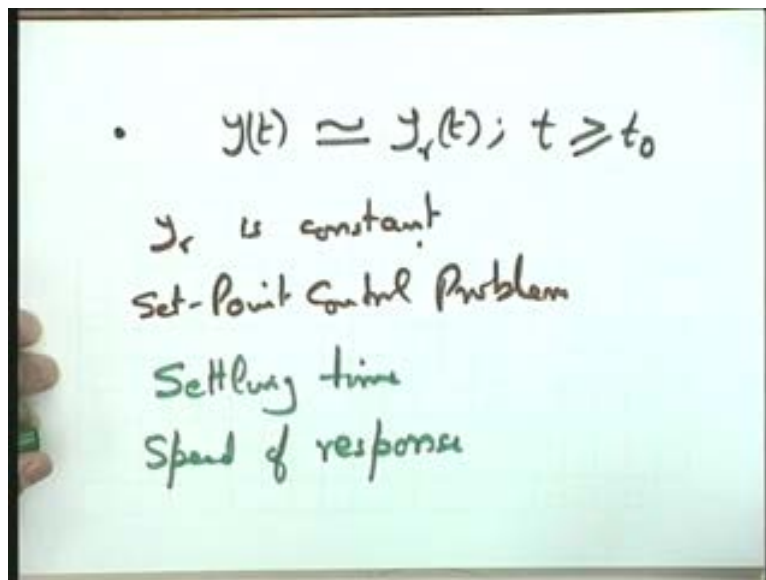 • y(t) ≃ y_r(t); t ≥ t_0
y_r is constant
Set-Point Control Problem
Settling time
Speed of response